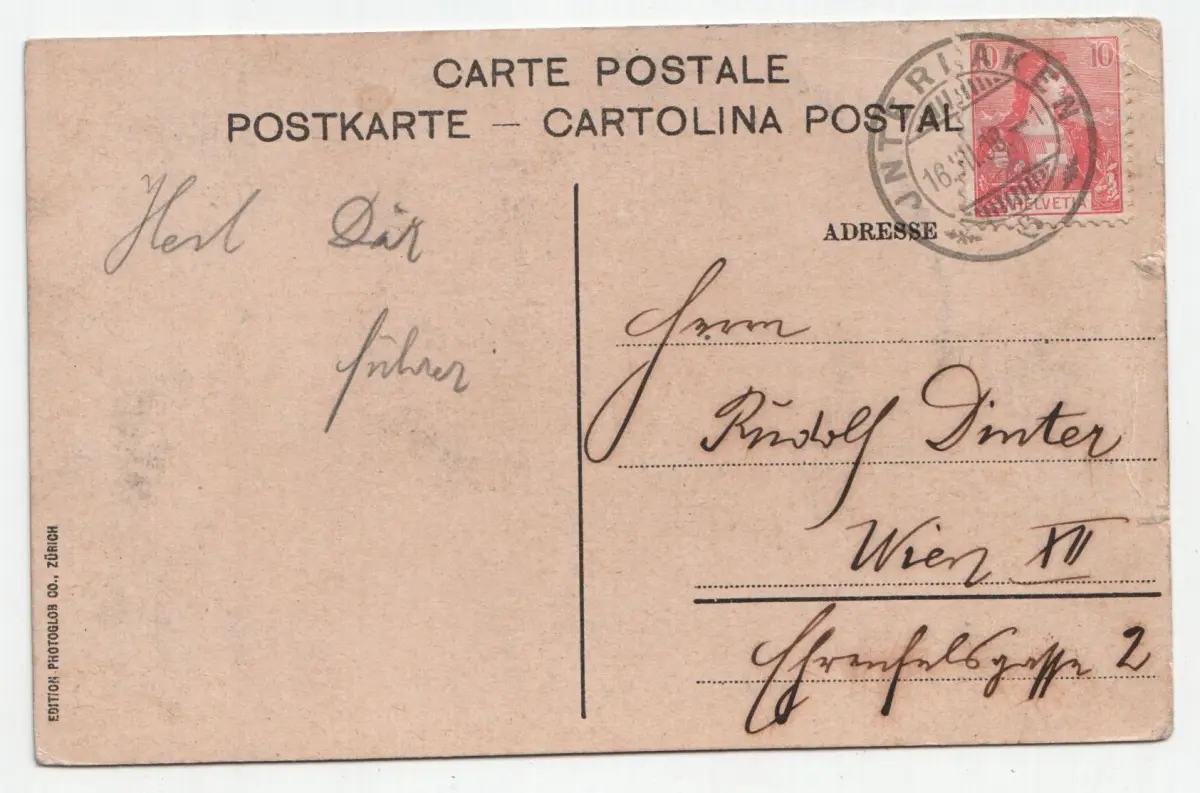 CARTE POSTALE
POSTKARTE — CARTOLINA POSTAL
JNTERLAKEN
16.VII.08
10 10
HELVETIA
ADRESSE
Heil Dir
führer
Herrn
Rudolf Dinter
Wien XII
Ehrenfelsgasse 2
EDITION PHOTOGLOB CO., ZÜRICH